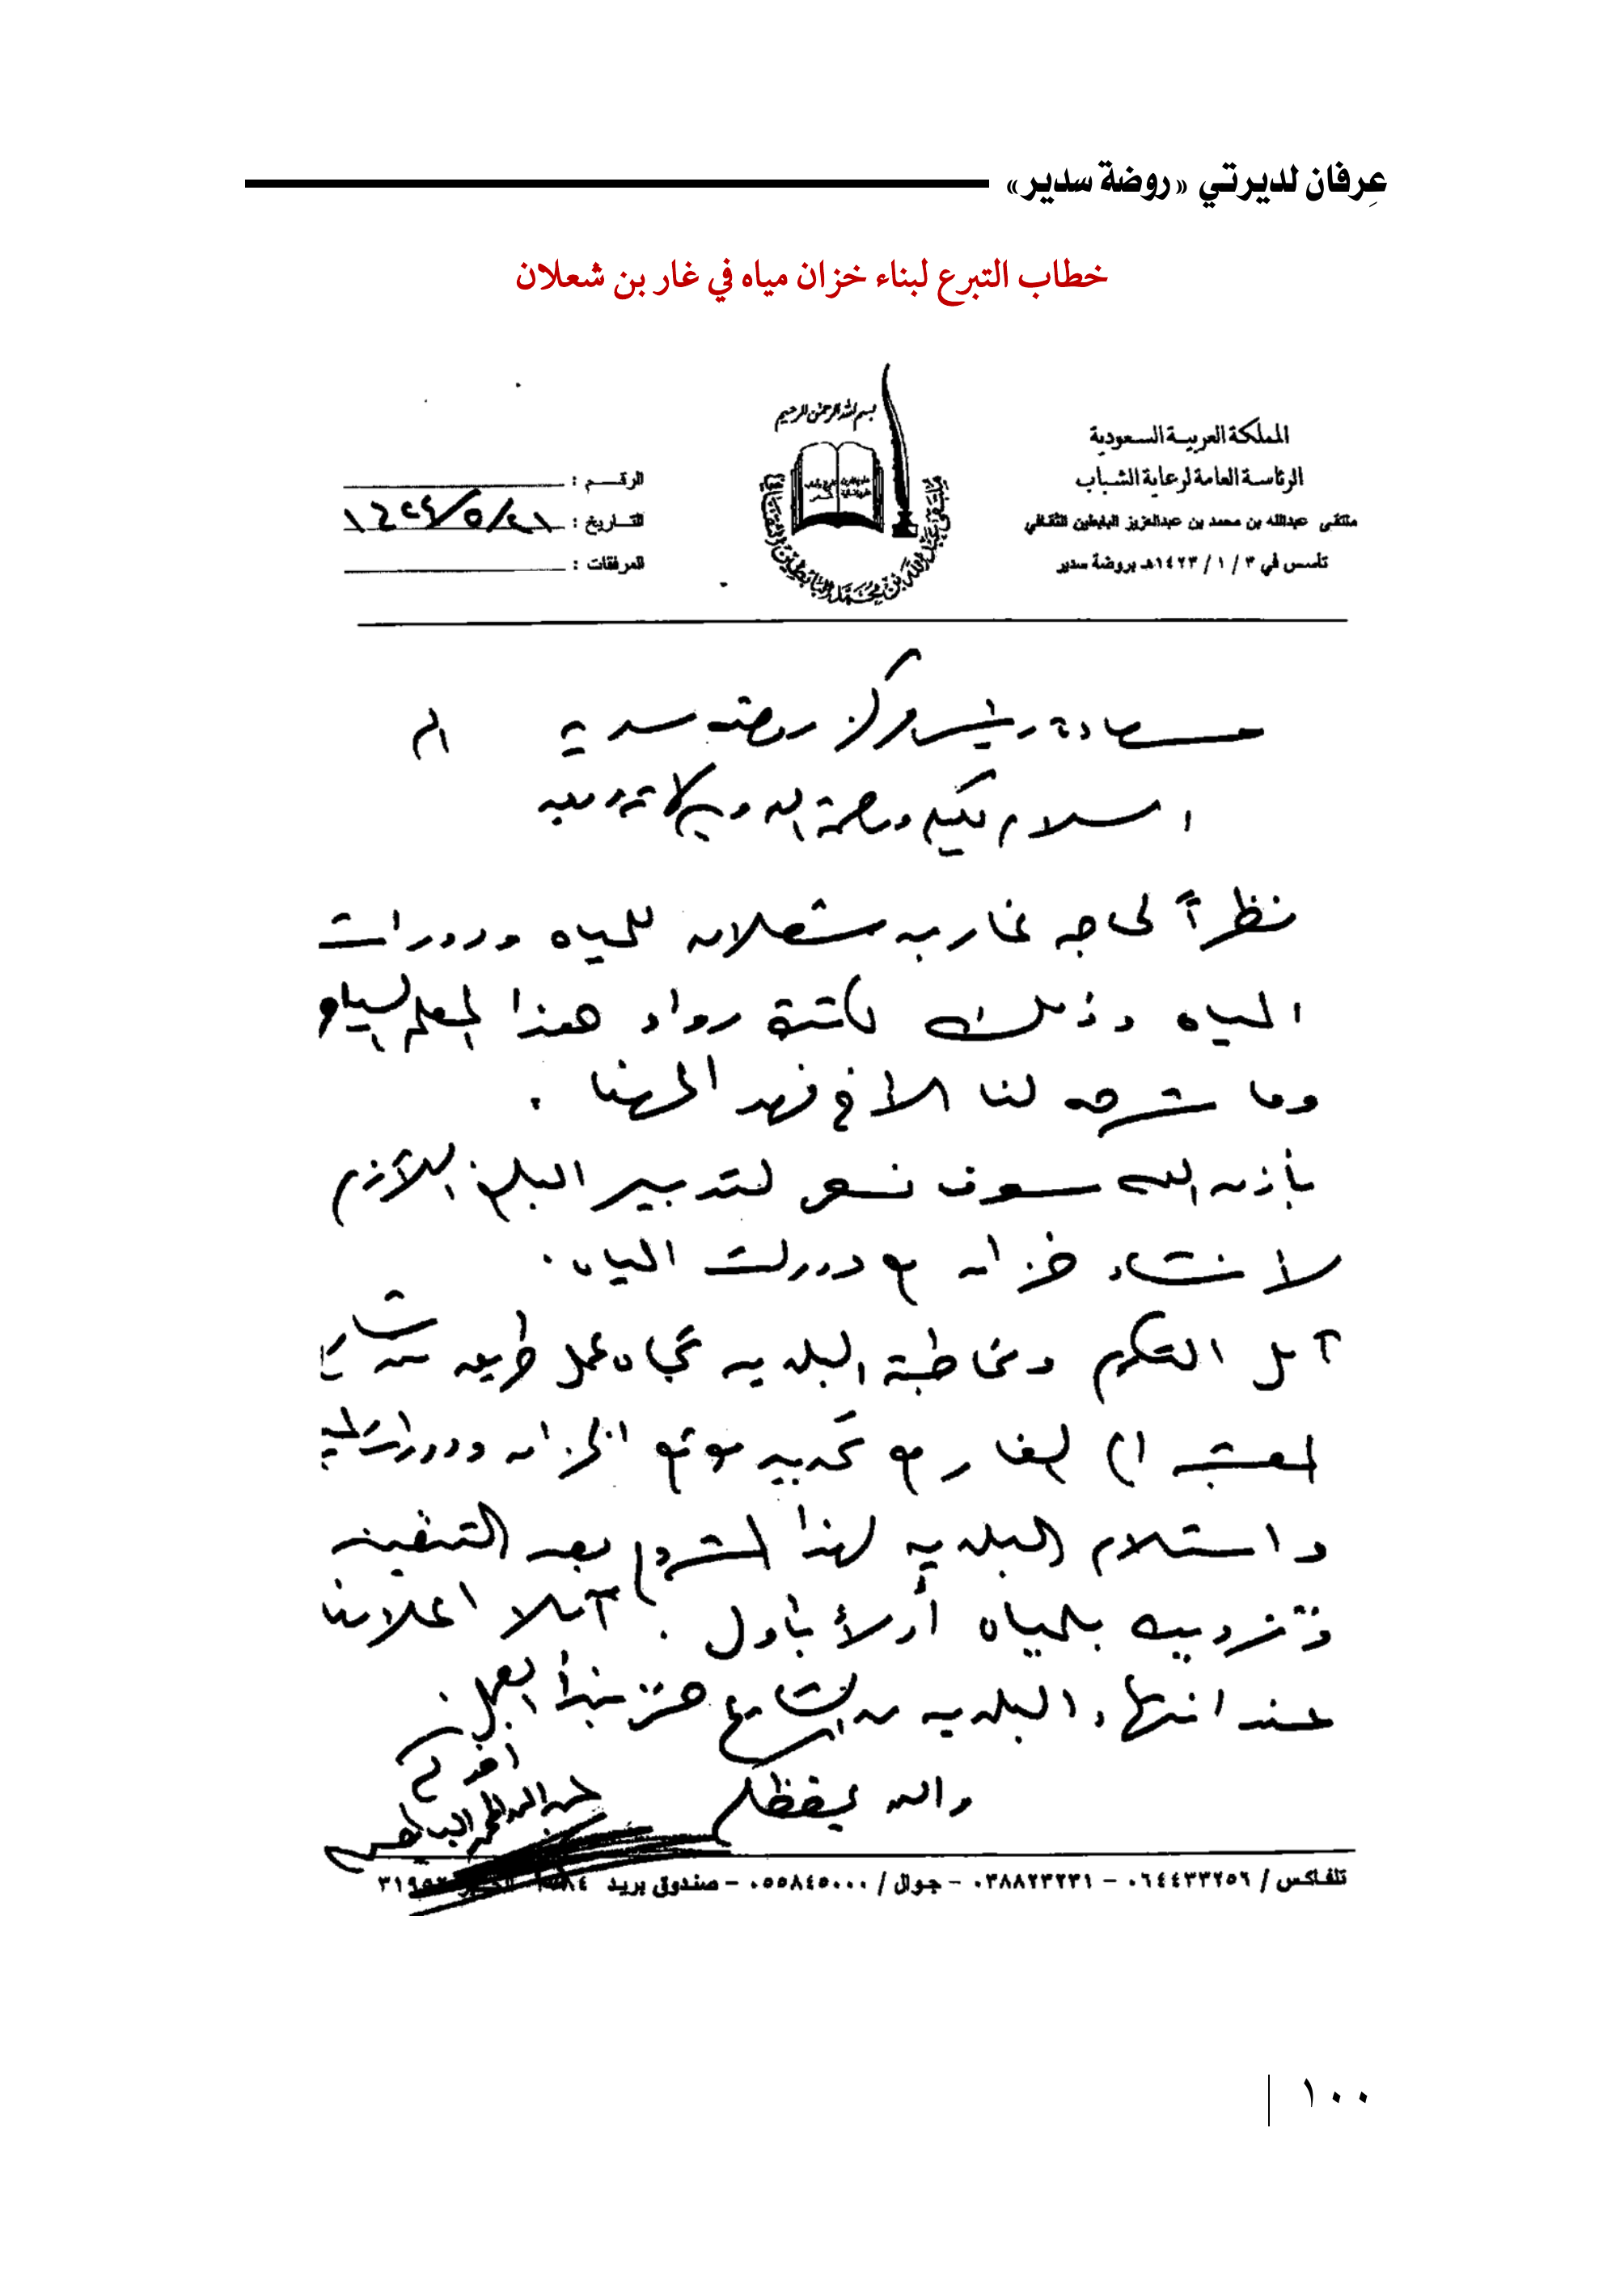 عِرفان لديرتي «روضة سدير»
خطاب التبرع لبناء خزان مياه في غار بن شعلان
بسم الله الرحمن الرحيم
المملكة العربية السعودية
الرئاسة العامة لرعاية الشباب
ملتقى عبدالله بن محمد بن عبدالعزيز البابطين الثقافي
تأسس في ٣ / ١ / ١٤٢٣هـ بروضة سدير
الرقم :
التاريخ : ١٤٢٤/٥/٢١
المرفقات :
سعادة رئيس مركز روضة سدير
السلام عليكم ورحمة الله وبركاته
نظراً لحاجه غار بن شعلان للمياه ودورات
المياه وذلك رواد هذا المعلم
وما شرحه لنا الاخ فهد المهنا .
بأذن الله سوف نسعى لتدبير المبلغ اللآزم
لانشاء خزان مع دورات المياه .
آمل التكرم ومخاطبة البلديه تجاه عمل طريق من شارع
العشب الى الغار مع تحديد موقع الخزان ودورات المياه
واستلام البلديه لهذا المشروع بعد التنفيذ
وتزويده بالمياه أولاً بأول . آملا اعلامنا
عند انتهاء البلديه من الشارع حتى نبدأ العمل .
والله يحفظكم
اخوكم
عبدالله المحمد البابطين
تلفاكس / ٠٦٤٤٣٣٢٥٦ - ٠٣٨٨٢٣٢٣١ - جوال / ٠٥٥٨٤٥٠٠٠ - صندوق بريد
١٠٠